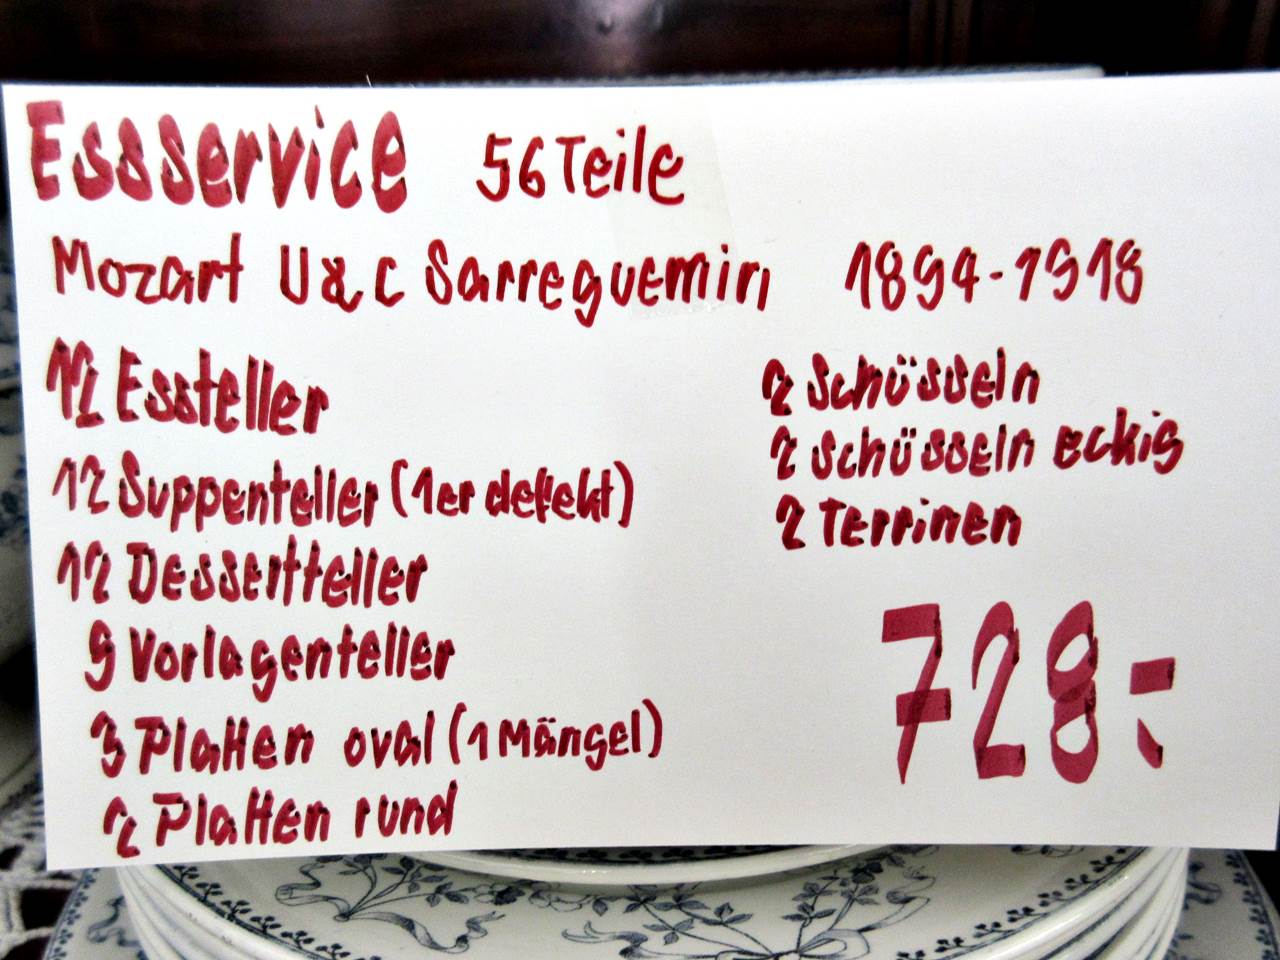 Essservice 56 Teile
Mozart U & C Sarreguemin 1894-1918
12 Essteller
12 Suppenteller (1er defekt)
12 Dessertteller
9 Vorlagenteller
3 Platten oval (1 Mängel)
2 Platten rund
2 Schüsseln
2 Schüsseln eckig
2 Terrinen
728,-